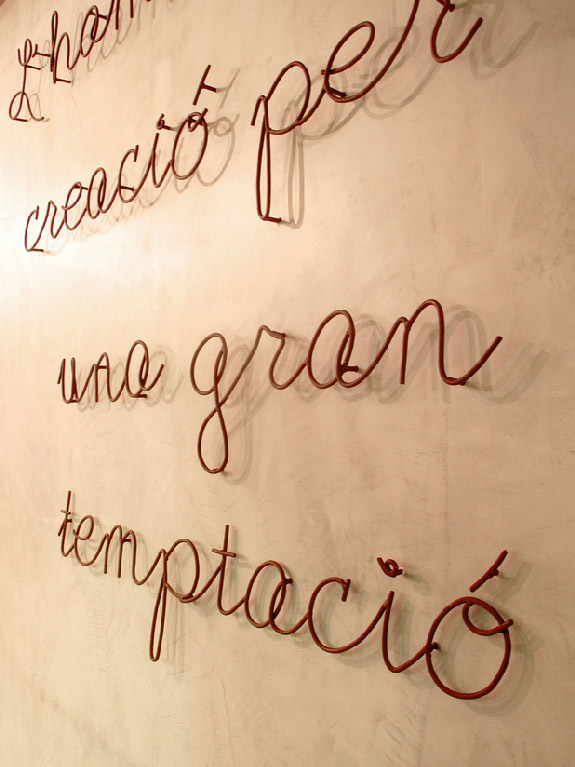 creació per
una gran
temptació